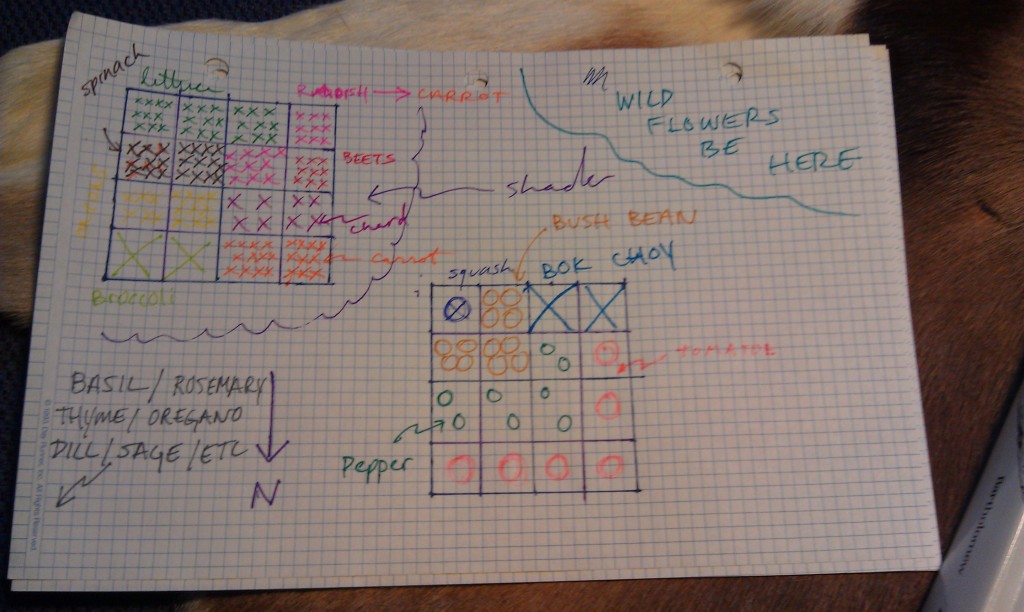 spinach
lettuce
RADISH → CARROT
WILD
FLOWERS
BE
HERE
BEETS
shade
chard
carrot
Broccoli
BUSH BEAN
squash
BOK CHOY
TOMATOE
Pepper
BASIL / ROSEMARY
THYME / OREGANO
DILL / SAGE / ETC
N
Bartholomew